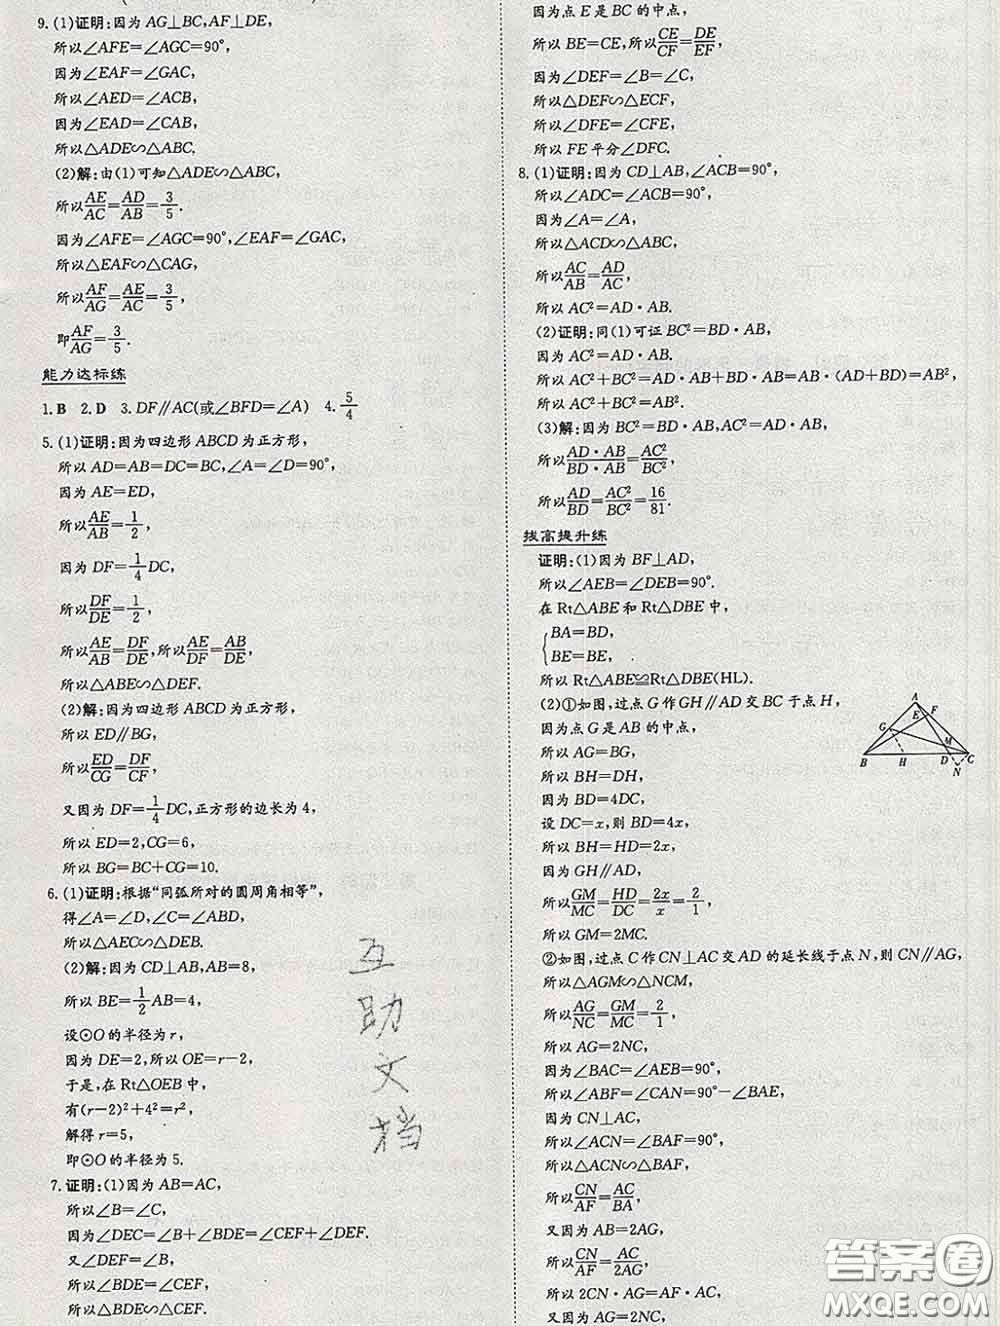 9. (1)证明:因为 AG⊥BC,AF⊥DE,
所以∠AFE=∠AGC=90°,
因为∠EAF=∠GAC,
所以∠AED=∠ACB,
因为∠EAD=∠CAB,
所以△ADE∽△ABC.
(2)解:由(1)可知△ADE∽△ABC,
所以AE/AC=AD/AB=3/5.
因为∠AFE=∠AGC=90°,∠EAF=∠GAC,
所以△EAF∽△CAG,
所以AF/AG=AE/AC=3/5,
即AF/AG=3/5.
能力达标练
1. B 2. D 3. DF∥AC(或∠BFD=∠A) 4. 5/4
5. (1)证明:因为四边形 ABCD 为正方形,
所以 AD=AB=DC=BC,∠A=∠D=90°,
因为 AE=ED,
所以AE/AB=1/2,
因为 DF=1/4DC,
所以DF/DE=1/2,
所以AE/AB=DF/DE,所以AE/DF=AB/DE,
所以△ABE∽△DEF.
(2)解:因为四边形 ABCD 为正方形,
所以 ED∥BG,
所以ED/CG=DF/CF,
又因为 DF=1/4DC,正方形的边长为 4,
所以 ED=2,CG=6,
所以 BG=BC+CG=10.
6. (1)证明:根据“同弧所对的圆周角相等”,
得∠A=∠D,∠C=∠ABD,
所以△AEC∽△DEB.
(2)解:因为 CD⊥AB,AB=8,
所以 BE=1/2AB=4,
设⊙O 的半径为 r,
因为 DE=2,所以 OE=r-2,
于是,在 Rt△OEB 中,
有(r-2)²+4²=r²,
解得 r=5,
即⊙O 的半径为 5.
7. 证明:(1)因为 AB=AC,
所以∠B=∠C,
因为∠DEC=∠B+∠BDE=∠CEF+∠DEF.
又∠DEF=∠B,
所以∠BDE=∠CEF,
所以△BDE∽△CEF.
因为点 E 是 BC 的中点,
所以 BE=CE,所以CE/CF=DE/EF,
因为∠DEF=∠B=∠C,
所以△DEF∽△ECF,
所以∠DFE=∠CFE,
所以 FE 平分∠DFC.
8. (1)证明:因为 CD⊥AB,∠ACB=90°,
所以∠ADC=∠ACB=90°,
因为∠A=∠A,
所以△ACD∽△ABC,
所以AC/AB=AD/AC,
所以 AC²=AD·AB.
(2)证明:同(1)可证 BC²=BD·AB,
因为 AC²=AD·AB.
所以 AC²+BC²=AD·AB+BD·AB=AB·(AD+BD)=AB²,
所以 AC²+BC²=AB².
(3)解:因为 BC²=BD·AB,AC²=AD·AB,
所以AD·AB/BD·AB=AC²/BC²,
所以AD/BD=AC²/BC²=16/81.
拔高提升练
证明:(1)因为 BF⊥AD,
所以∠AEB=∠DEB=90°.
在 Rt△ABE 和 Rt△DBE 中,
{BA=BD,
BE=BE,
所以 Rt△ABE≌Rt△DBE(HL).
(2)①如图,过点 G 作 GH∥AD 交 BC 于点 H,
因为点 G 是 AB 的中点,
所以 AG=BG,
所以 BH=DH,
因为 BD=4DC,
设 DC=x,则 BD=4x,
所以 BH=HD=2x,
因为 GH∥AD,
所以GM/MC=HD/DC=2x/x=2/1,
所以 GM=2MC.
②如图,过点 C 作 CN⊥AC 交 AD 的延长线于点 N,则 CN∥AG,
所以△AGM∽△NCM,
所以AG/NC=GM/MC=2/1,
所以 AG=2NC,
因为∠BAC=∠AEB=90°,
所以∠ABF=∠CAN=90°-∠BAE,
因为 CN⊥AC,
所以∠ACN=∠BAF=90°,
所以△ACN∽△BAF,
所以CN/AF=AC/BA,
又因为 AB=2AG,
所以CN/AF=AC/2AG,
所以 2CN·AG=AF·AC,
又因为 AG=2NC,
A
E F
G
M
B H D C
N
互
助
文
档
答案卷
MXQE.COM